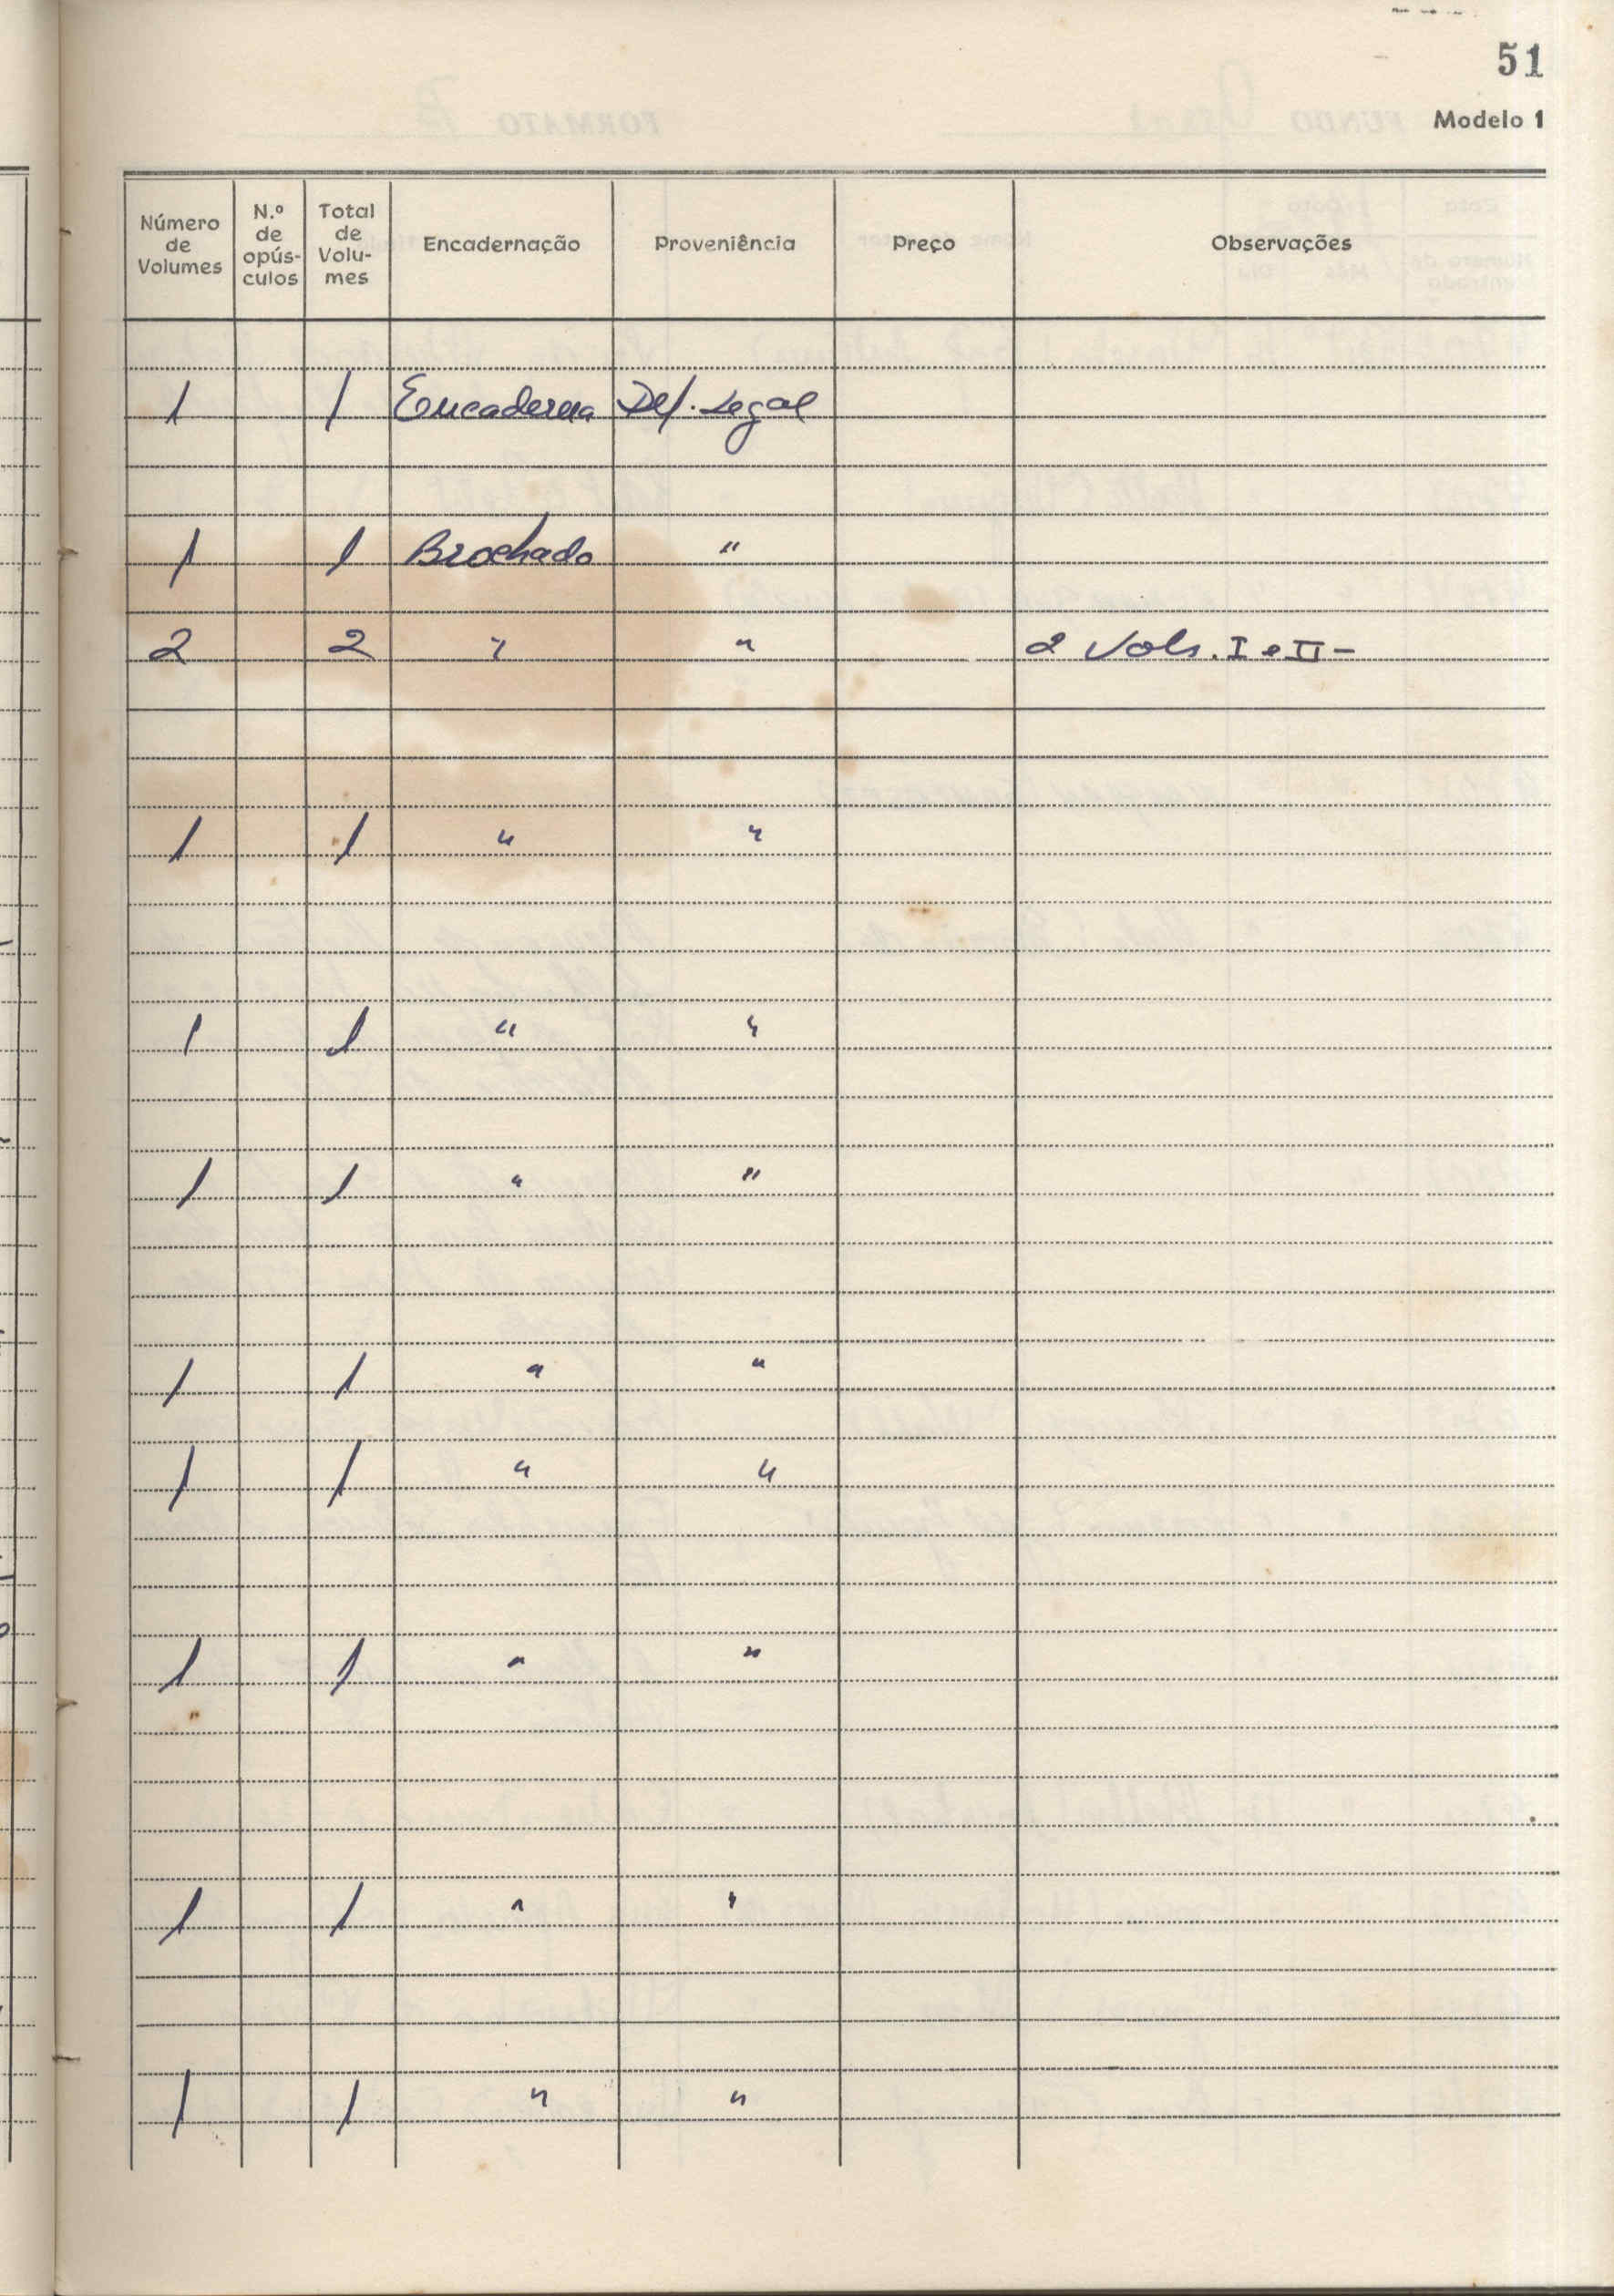 51
Modelo 1
Número de Volumes N.º de opús- culos Total de Volu- mes Encadernação Proveniência Preço Observações
1 1 Encaderna Dep. Legal
1 1 Brochado "
2 2 " " 2 Vols. I e II -
1 1 " "
1 1 " "
1 1 " "
1 1 " "
1 1 " "
1 1 " "
1 1 " "
1 1 " "